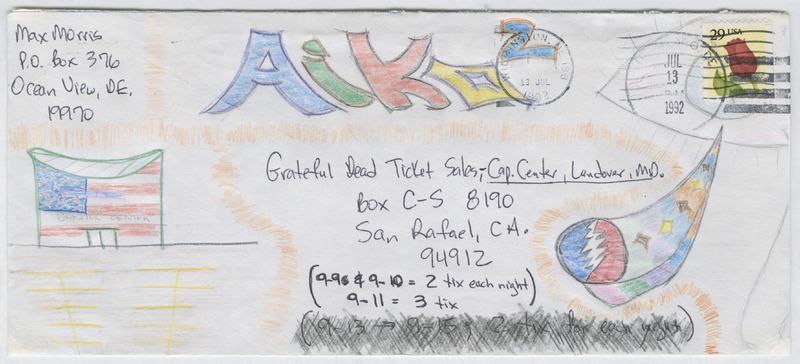 Max Morris
P.O. Box 376
Ocean View, DE.
19970
Aiko
2
13 JUL
1992
JUL
13
1992
29 USA
Grateful Dead Ticket Sales; Cap. Center, Landover, MD.
Box C-S 8190
San Rafael, CA.
94912
(9-9 & 9-10 = 2 tix each night)
9-11 = 3 tix
(9-13 → 9-15; 2 tix for each night)
CAPITAL CENTER